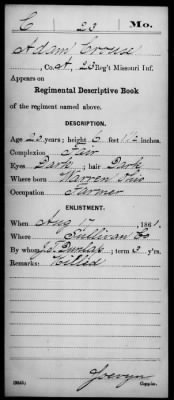 C 23 Mo.
Adam Crouse
, Co. A, 23 Reg't Missouri Inf.
Appears on
Regimental Descriptive Book
of the regiment named above.
DESCRIPTION.
Age 23 years; height 6 feet 1½ inches.
Complexion Fair
Eyes Dark ; hair Dark
Where born Warren Ohio
Occupation Farmer
ENLISTMENT.
When Aug 17 , 1861.
Where Sullivan Co
By whom J. Dunlap ; term 3 y'rs.
Remarks: Killed
Copyist.